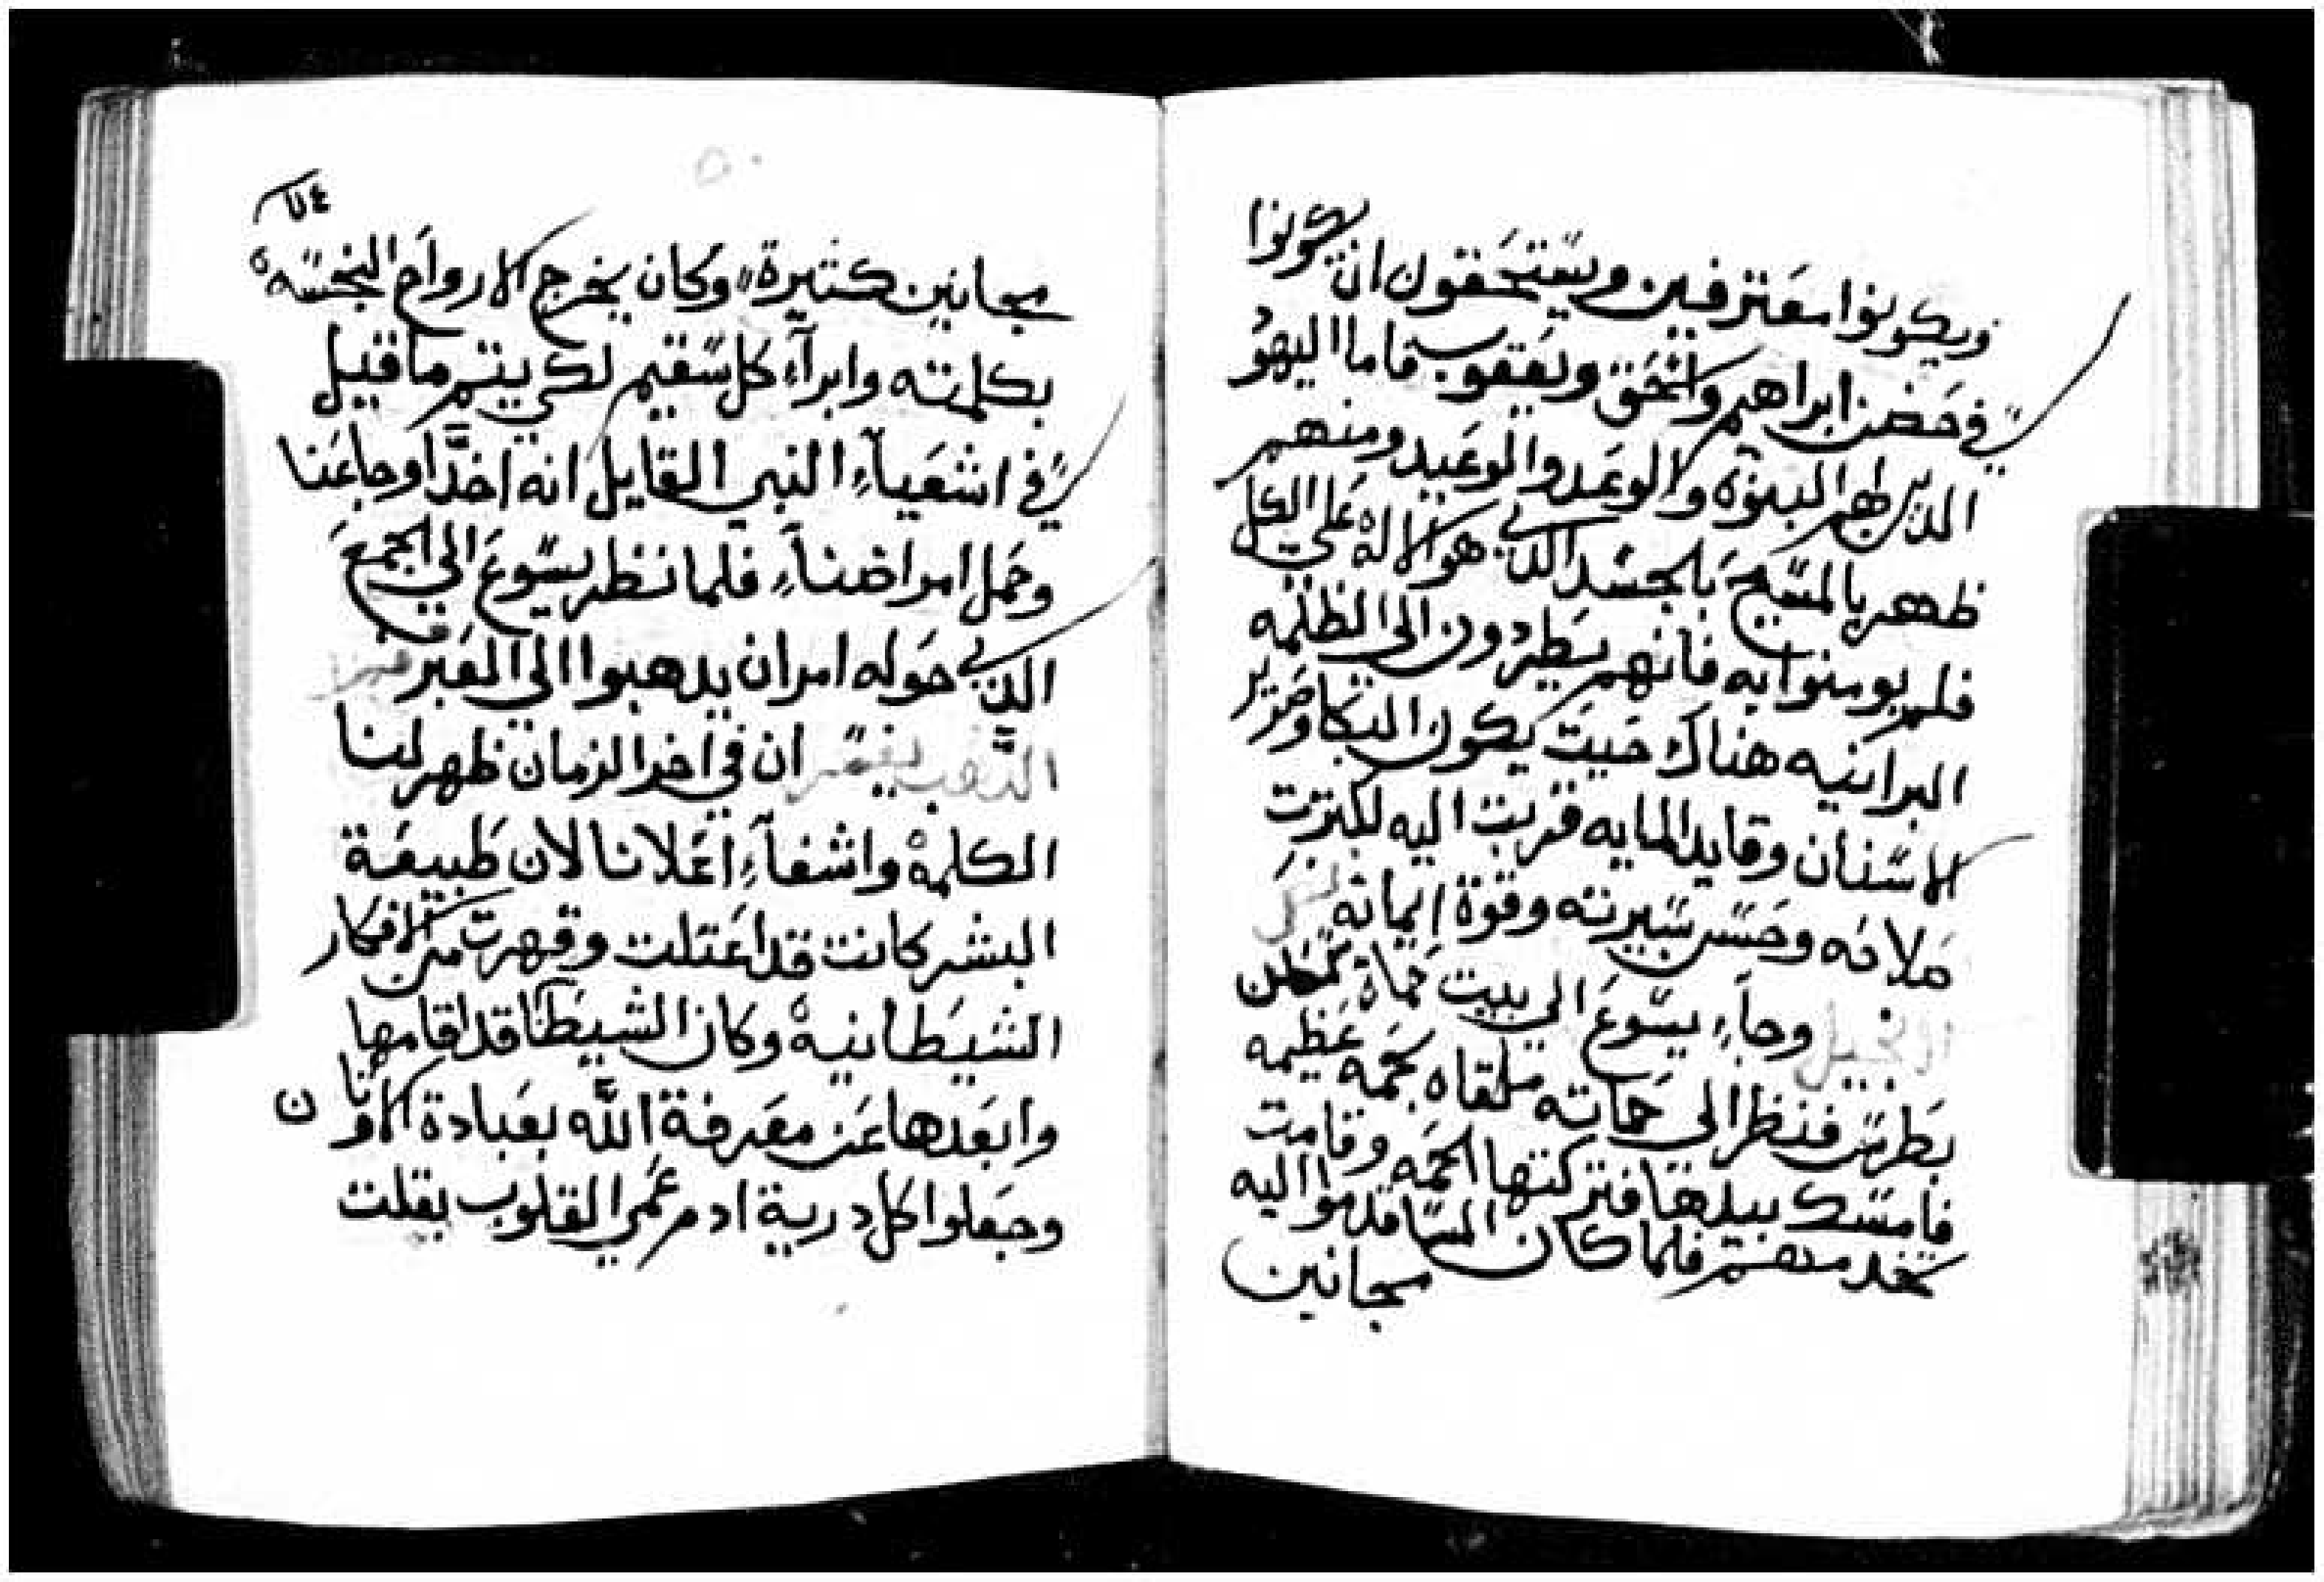 ويكونوا معترفين ويستحقون ان يكونوا
في حضن ابراهيم واسحق ويعقوب فاما اليهود
الدين لهم البنوه والوعد والوعيد ومنهم
ظهر بالمسيح بالجسد الدي هو الاله علي الكل
فلم يومنوا به فانهم يطردون الي الظلمه
البرانيه هناك حيت يكون البكا وصرير
الاسنان وقايد المايه قربت اليه لكترت
صلاحه وحسن سيرته وقوة ايمانه
الانجيل وجاء يسوع الي بيت حماة
بطرس فنظر الي حماته ملقاه بحمه عظيمه
فامسك بيدها فتركتها الحمه وقامت
تخدمهم فلما كان المسا قدموا اليه
مجانين
مجانين كتيرة وكان يخرج الارواح النجسه
بكلمته وابراء كل سقيم لكي يتم ما قيل
في اشعياء النبي القايل انه اخد اوجاعنا
وحمل امراضناء فلما نظر يسوع الي الجمع
الدي حوله امر ان يدهبوا الي العبر
التفسير ان في اخر الزمان ظهر لنا
الكلمه واشفاء اعلانا لان طبيعة
البشر كانت قد اعتلت وقهرت من الافكار
الشيطانيه وكان الشيطان قد اقامها
وابعدها عن معرفة الله بعبادة الاوتان
وجعلوا كل درية ادم عمي القلوب بقلت